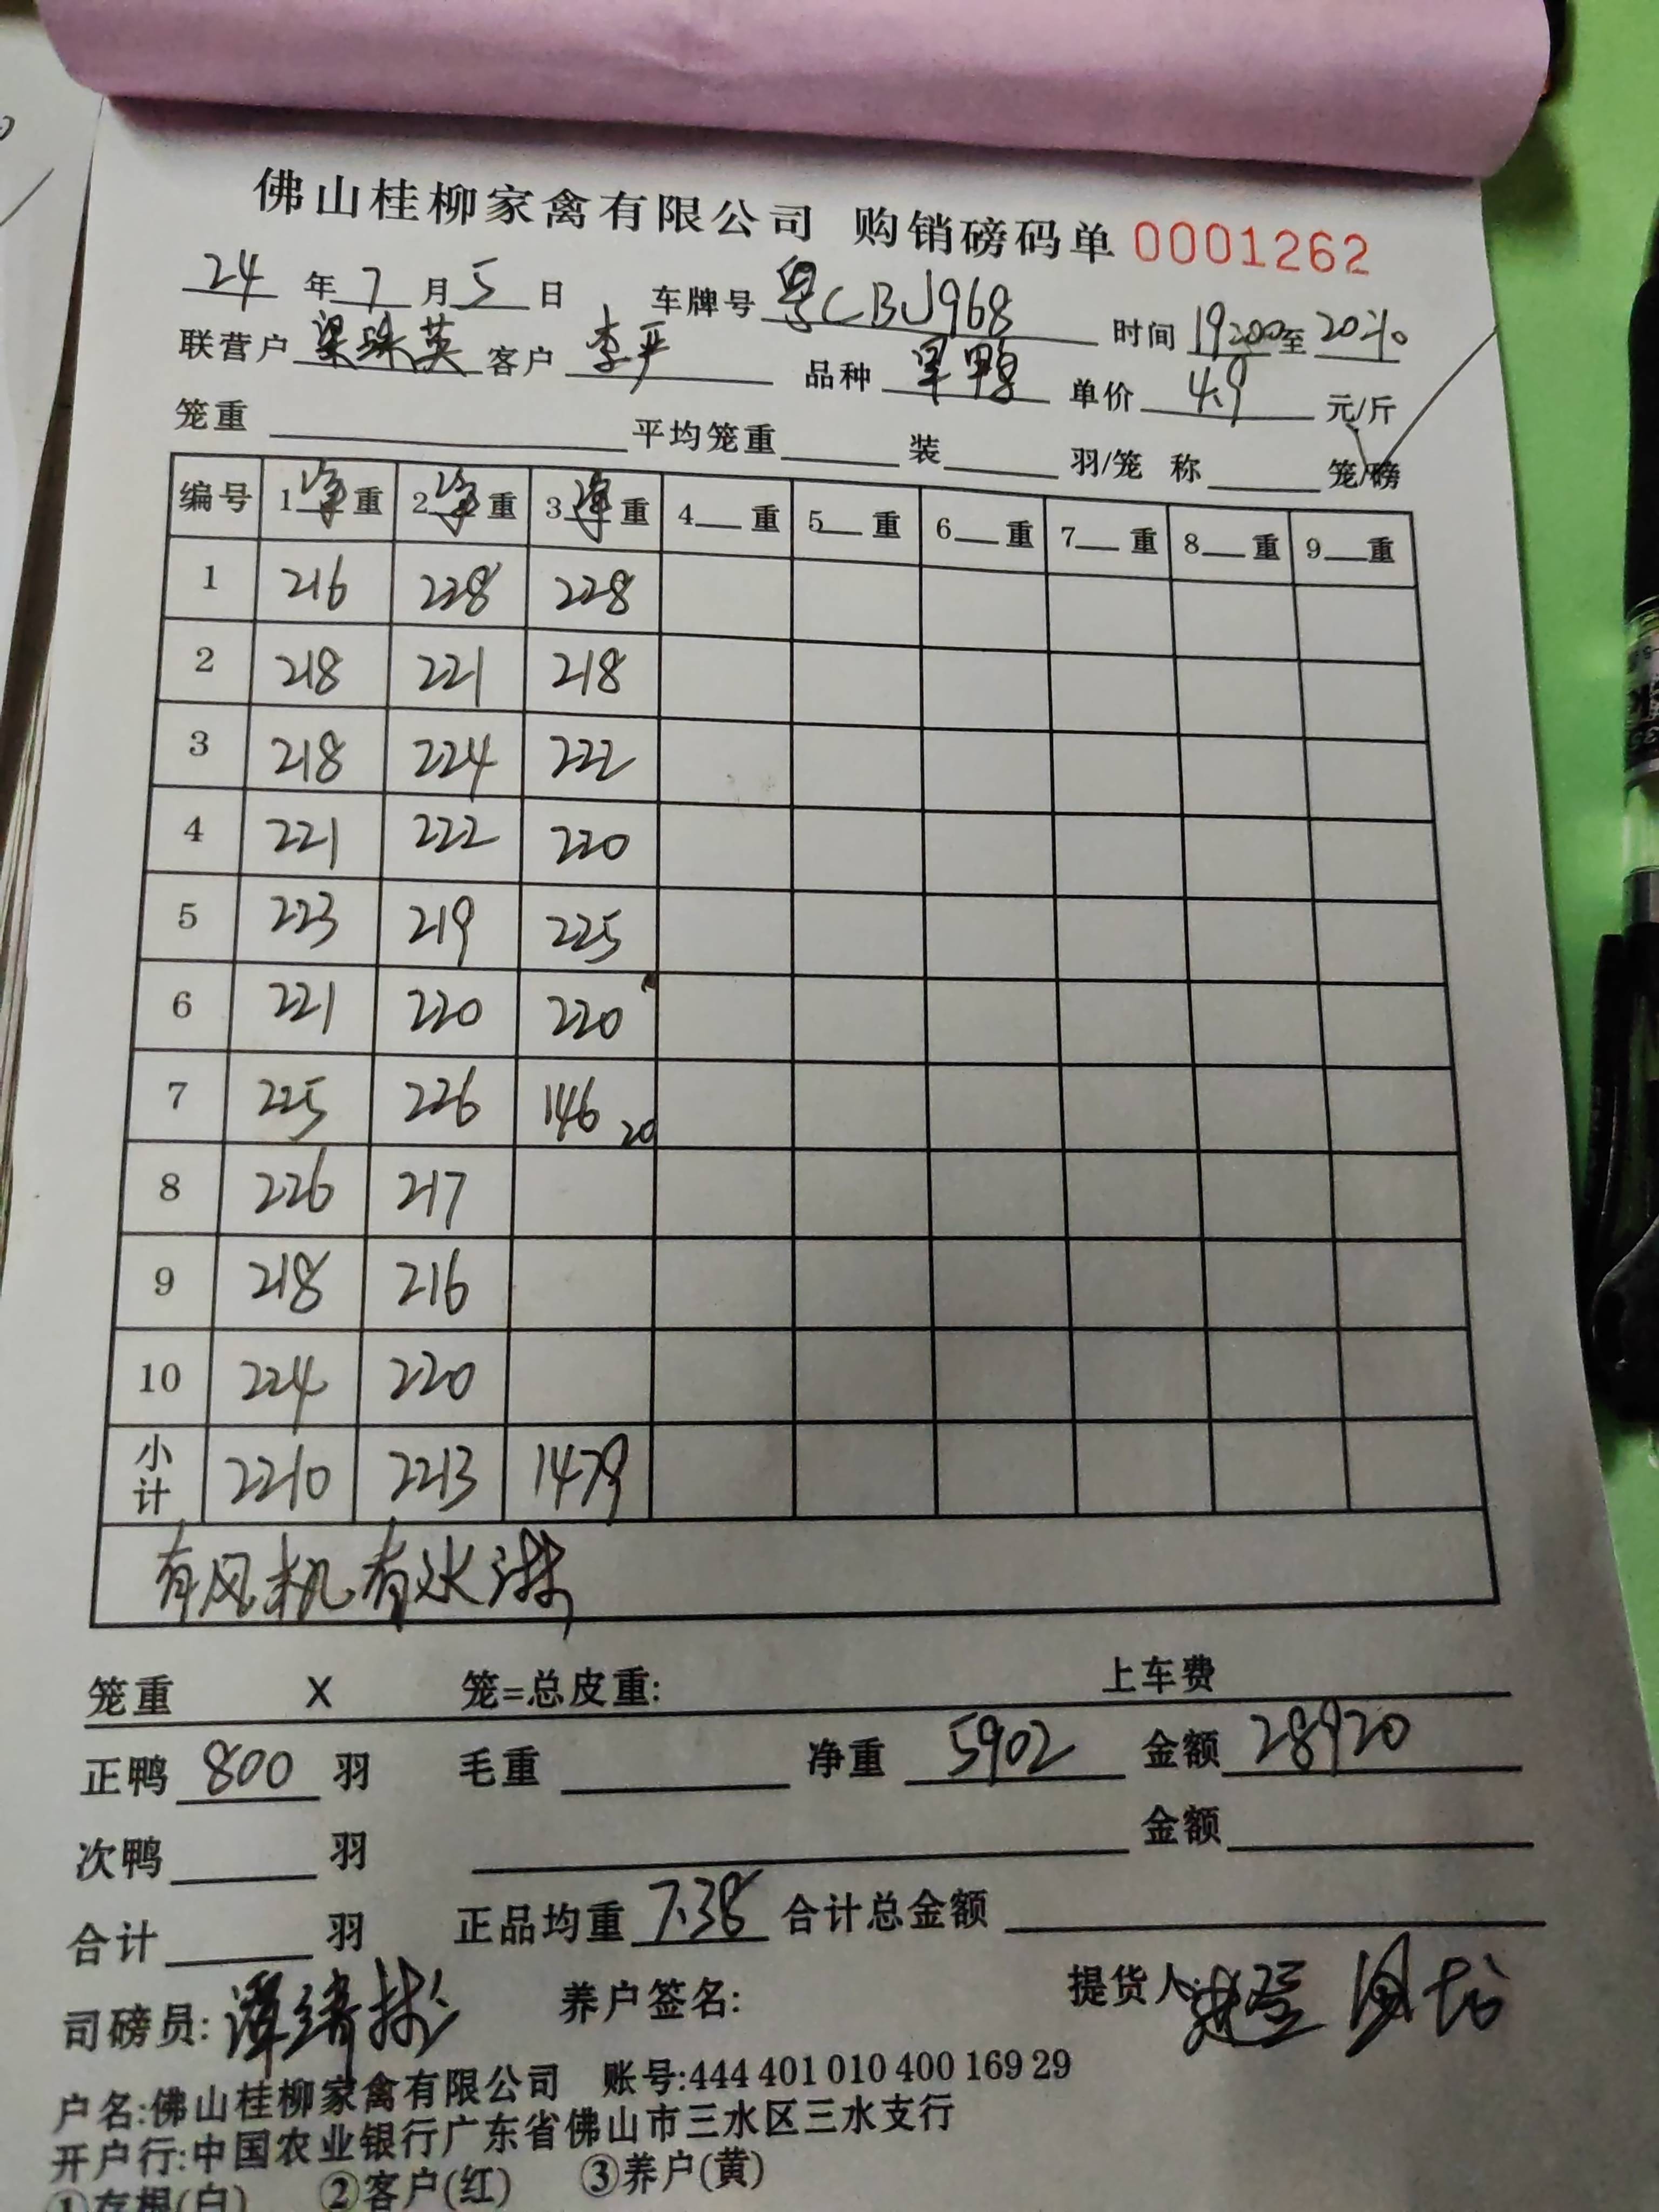 佛山桂柳家禽有限公司 购销磅码单 0001262
24 年 7 月 5 日 车牌号 粤CBJ968 时间 19:00 至 20:10
联营户 梁珠英 客户 李严 品种 旱鸭 单价 4.9 元/斤
笼重 平均笼重 装 羽/笼 称 笼/磅
编号 1净重 2净重 3净重 4 重 5 重 6 重 7 重 8 重 9 重
1 216 228 228
2 218 221 218
3 218 224 222
4 221 222 220
5 223 219 225
6 221 220 220
7 225 226 146 20
8 226 217
9 218 216
10 224 220
小计 2210 2213 1479
有风机有水淋
笼重 X 笼=总皮重: 上车费
正鸭 800 羽 毛重 净重 5902 金额 28920
次鸭 羽 金额
合计 羽 正品均重 7.38 合计总金额
司磅员: 养户签名: 提货人:
户名:佛山桂柳家禽有限公司 账号:444 401 010 400 169 29
开户行:中国农业银行广东省佛山市三水区三水支行
①存根(白) ②客户(红) ③养户(黄)